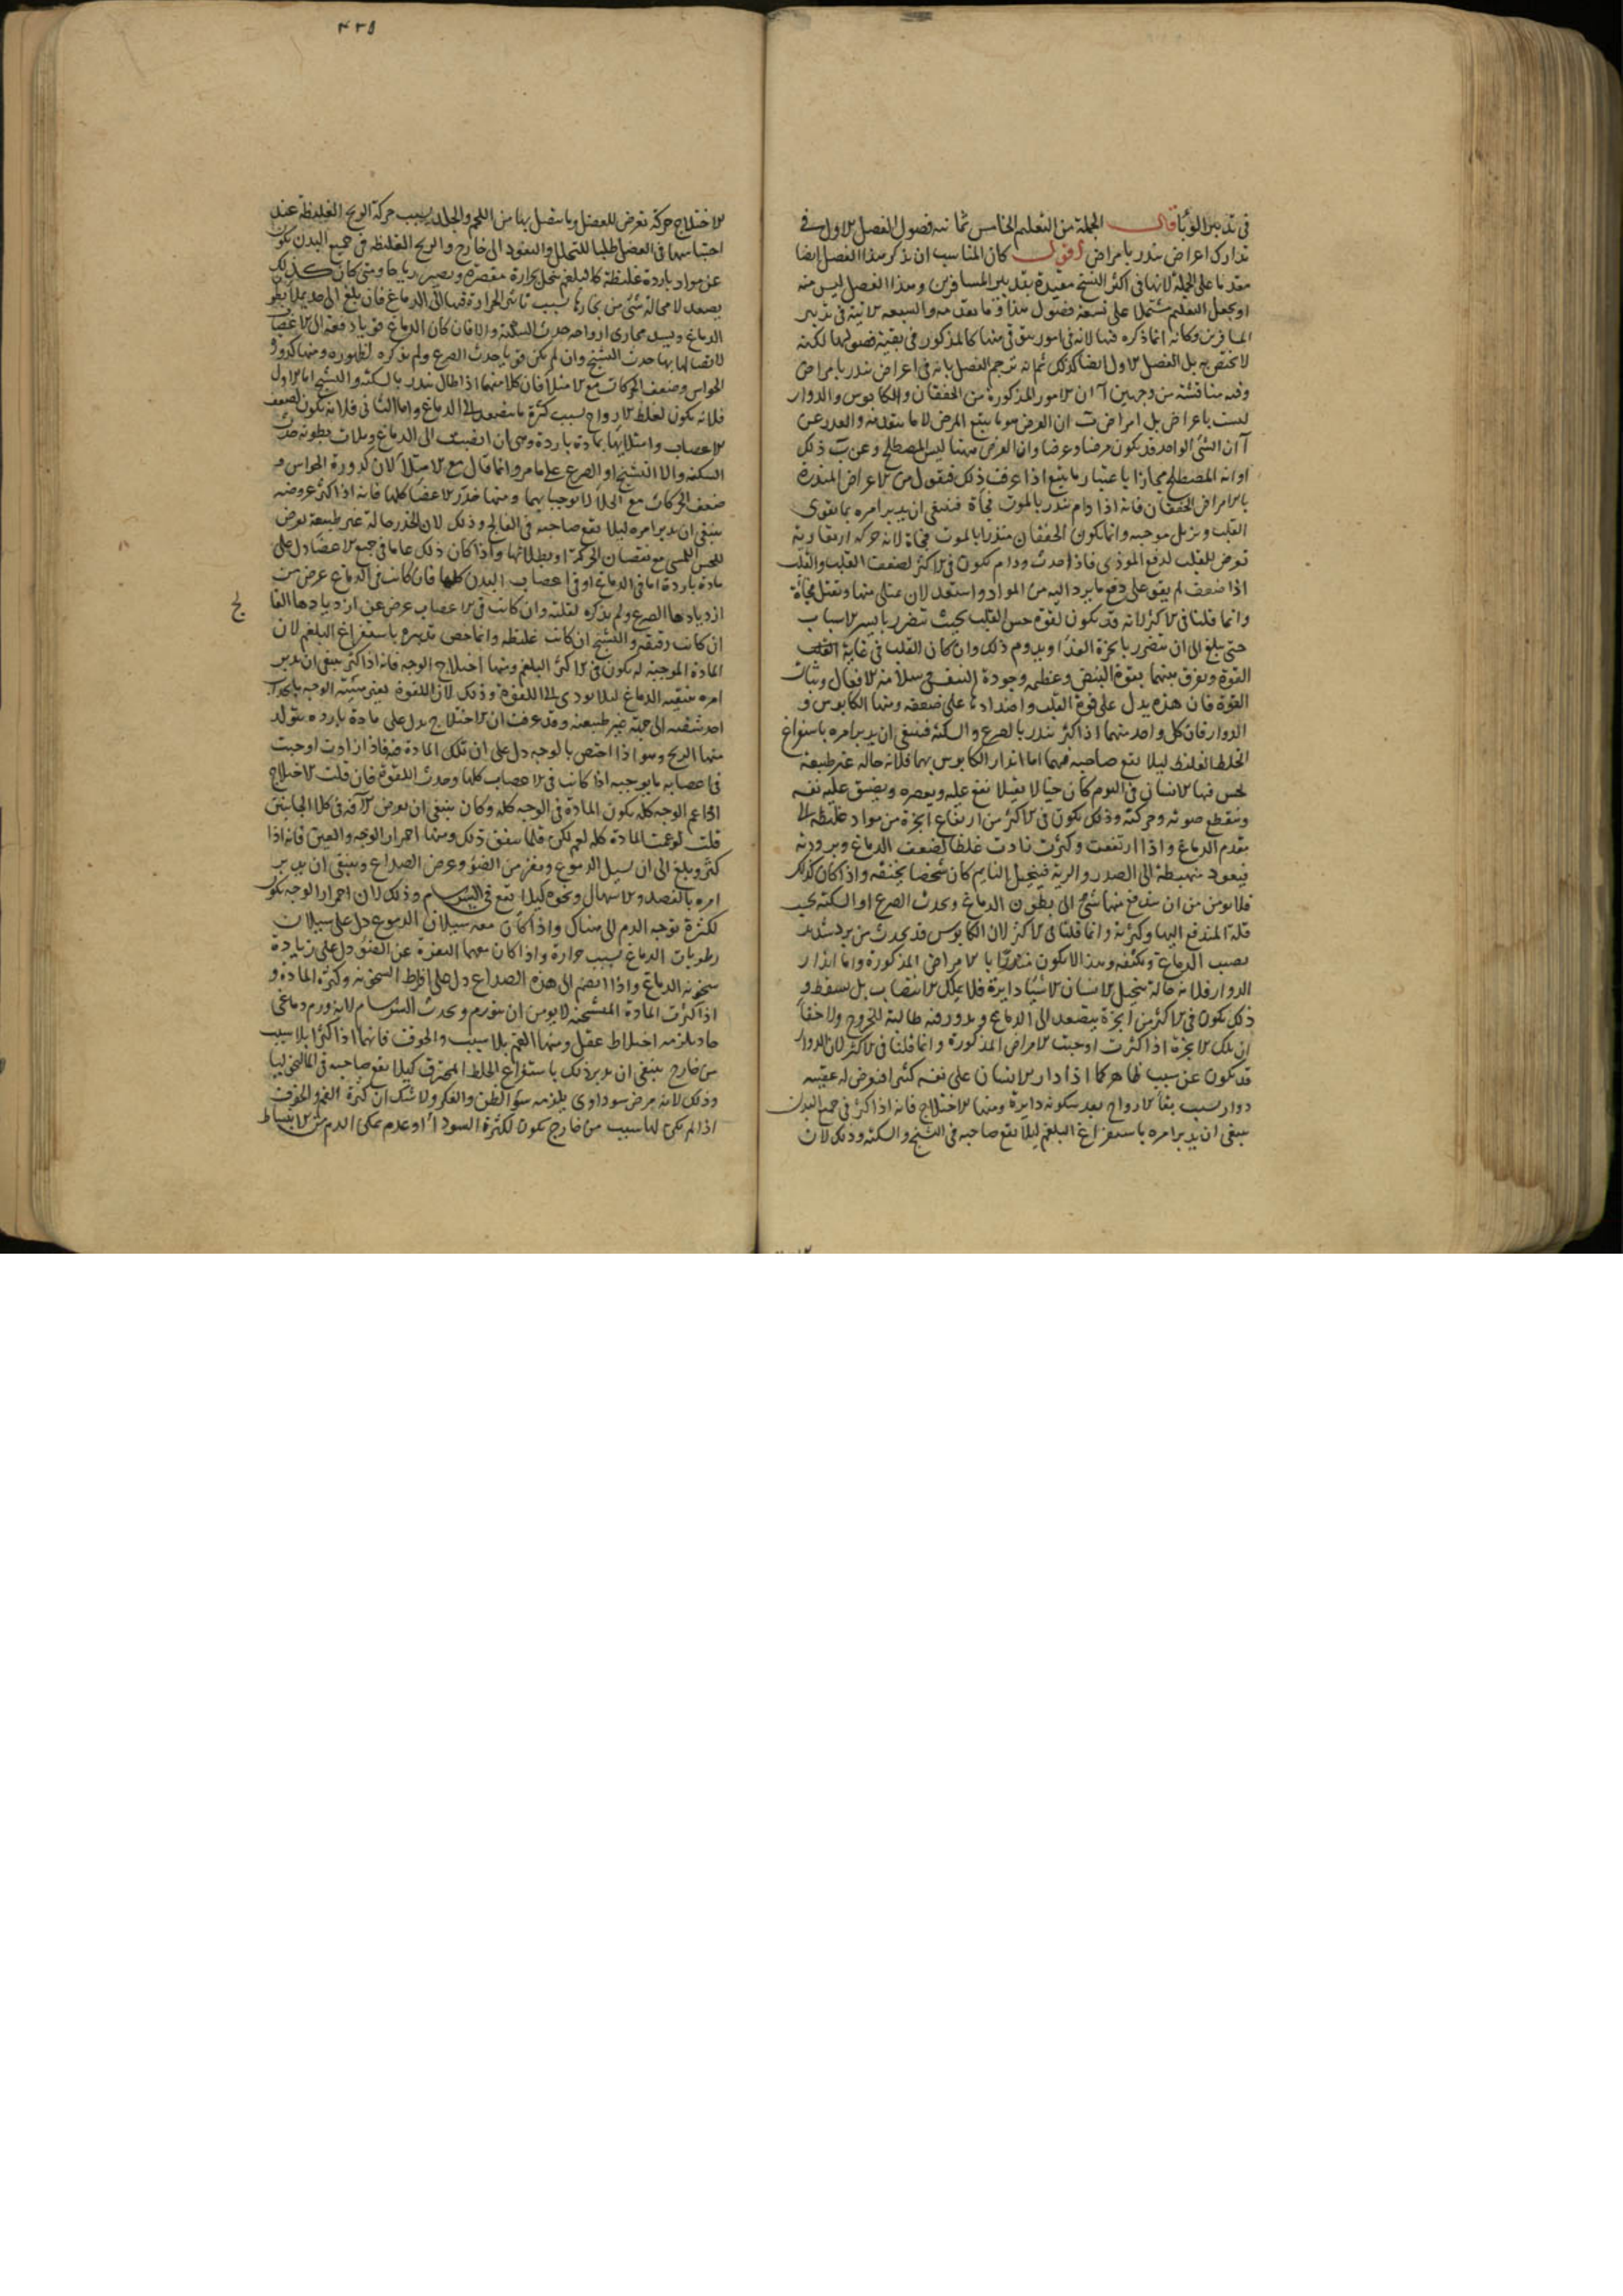 في تدبير الوبا قال الجملة من التعليم الخامس ثمانية فصول الفصل الاول في
تدارك اعراض تنذر بامراض اقول كان المناسب ان يذكر هذا الفصل ايضا
مقدما على الجملة لانها في اكثر النسخ مقيدة بتدبير المسافرين وهذا الفصل ليس منه
او يجعل التعليم مشتملا على تسعة فصول هذا وما بعده والسبعة الاتية في تدبير
المسافرين وكانه انما ذكره فيها لانه في امور يتوقى منها كالمذكور في بقية فصولها لكنه
لا يختص به بل الفصل الاول ايضا كذلك ثم انه ترجم الفصل بانه في اعراض تنذر بامراض
وفيه مناقشة من وجهين آ ان الامور المذكورة من الخفقان والكابوس والدوار
ليست باعراض بل امراض ب ان العرض هو ما يتبع المرض لا ما يتقدمه والعذر عن
آ ان الشئ الواحد قد يكون مرضا وعرضا وان العرض ههنا ليس المصطلح وعن ب ذلك
او انه المصطلح مجازا باعتبار ما يتبع اذا عرفت ذلك فنقول من الاعراض المنذرة
بالامراض الخفقان فانه اذا دام ينذر بالموت فجأة فينبغي ان يدبر امره بما يقوي
القلب ويزيل موجبه وانما يكون الخفقان منذرا بالموت فجاة لانه حركة ارتعادية
تعرض للقلب لدفع الموذي فاذا حدث ودام يكون في الاكثر لضعف القلب والقلب
اذا ضعف لم يقو على دفع ما يرد اليه من المواد واستعد لان يمتلي منها وتقتل فجأة
وانما قلنا في الاكثر لانه قد يكون لقوة حس القلب بحيث تتضرر بايسر الاسباب
حتى يبلغ الى ان يتضرر بابخرة الغذا ويدوم ذلك وان كان القلب في غاية
القوة ويفرق بينهما بقوة النبض وعظمه وجودة التنفس سلامة الافعال وثبات
القوة فان هذه يدل على قوة القلب واضدادها على ضعفه ومنها الكابوس و
الدوار فان كل واحد منهما اذا كثر ينذر بالصرع والسكتة فينبغي ان يدبر امره باستفراغ
الخلط الغليظ ليلا يقع صاحبه فيهما اما انذار الكابوس بهما فلانه حالة غير طبيعة
يحس فيها الانسان في النوم كان خيالا ثقيلا يقع عليه ويعصره ويضيق عليه نفسه
وينقطع صوته وحركته وذلك يكون في الاكثر من ارتفاع ابخرة من مواد غليظة الى
مقدم الدماغ واذا ارتفعت وكثرت زادت غلظا لضعف الدماغ وبرودته
فيعود منهبطة الى الصدر والرية فيتخيل النايم كان شخصا يخنقه واذا كان كذلك
فلا يومن من ان يندفع منها شئ الى بطون الدماغ ويحدث الصرع او السكتة بحسب
قلة المندفع اليها وكثرته وانما قلنا في الاكثر لان الكابوس قد يحدث من برد شديد
يصيب الدماغ ويكثفه وهذا لا يكون منذرا بالامراض المذكورة واما انذار
الدوار فلانه حالة يتخيل الانسان الاشيا دايرة فلا يملك الانتصاب بل يسقط و
ذلك يكون في الاكثر من ابخرة يتصعد الى الدماغ ويدور فيه طالبة للخروج ولا خفاء
ان تلك الابخرة اذا كثرت اوجبت الامراض المذكورة وانما قلنا في الاكثر لان الدوار
قد يكون عن سبب ظاهر كما اذا دار الانسان على نفسه كثيرا فيعرض له عقيبه
دوار بسبب بقا الارواح بعد سكونه دايرة ومنها الاختلاج فانه اذا كثر في جميع البدن
ينبغي ان يدبر امره باستفراغ البلغم ليلا يقع صاحبه في التشنج والسكتة وذلك لان
٤٣٥
الاختلاج حركة تعرض للعضل وما يتصل بها من اللحم والجلد بسبب حركة الريح الغليظة عند
احتباسها في العضل طلبا للتحلل والنفوذ الى خارج والريح الغليظة في جميع البدن يكون
عن مواد باردة غليظة كالبلغم تتحلل بحرارة مقصرة ويصير رياحا ومتى كان كذلك
يصعد لا محالة شئ من بخارها بسبب تاثير الحرارة فيها الى الدماغ فان بلغ الى حد يملا بطون
الدماغ ويسد مجاري ارواحه حدث السكتة والا فان كان الدماغ قويا دفعه الى الاعصاب
لاتصالها بها حدث التشنج وان لم يكن قويا يحدث الصرع ولم يذكره لظهوره ومنها كدورة
الحواس وضعف الحركات مع الامتلا فان كلا منهما اذا طال ينذر بالسكتة والتشنج اما الاول
فلانه يكون لغلظ الارواح بسبب كثرة ما يتصعد الى الدماغ واما الثاني فلانه يكون لضعف
الاعصاب وامتلايها بمادة باردة وهي ان انصبت الى الدماغ وملات بطونه حدث
السكتة والا التشنج او الصرع على ما مر وانما قال مع الامتلا لان كدورة الحواس و
ضعف الحركات مع الخلا لا يوجبانهما ومنها خدر الاعضا كلها فانه اذا كثر عروضه
ينبغي ان يدبر امره ليلا يقع صاحبه في الفالج وذلك لان الخدر حالة غير طبيعة تعرض
للحس اللمسي مع نقصان الحركة او بطلانها واذا كان ذلك عاما في جميع الاعضا دل على
مادة باردة اما في الدماغ او في اعصاب البدن كلها فان كانت في الدماغ عرض من
ازديادها الصرع ولم يذكره لقلته وان كانت في الاعصاب عرض عن ازديادها الفا
لج
ان كانت رقيقة والتشنج ان كانت غليظة وانما خص تدبيره باستفراغ البلغم لان
المادة الموجبة له يكون في الاكثر البلغم ومنها اختلاج الوجه فانه اذا كثر ينبغي ان يدبر
امره بتنقية الدماغ ليلا يودي الى اللقوة وذلك لان اللقوة يعني هيئة الوجه بانجذاب
احد شقيه الى جهة غير طبيعية وقد عرفت ان الاختلاج يدل على مادة باردة يتولد
منها الريح وهو اذا اختص بالوجه دل على ان تلك المادة فيه فاذا ازدادت اوجبت
في اعصابه ما يوجبه اذا كانت في الاعصاب كلها وحدث اللقوة فان قلت الاختلاج
اذا عم الوجه كله يكون المادة في الوجه كله وكان ينبغي ان يعرض الافة في كلا الجانبين
قلت لو عمت المادة كله لعم لكن قلما يتفق ذلك ومنها احمرار الوجه والعين فانه اذا
كثر وبلغ الى ان يسيل الدموع ويفر من الضوء وعرض الصداع وينبغي ان يدبر
امره بالفصد والاسهال ونحوه كيلا يقع في السرسام وذلك لان احمرار الوجه يكون
لكثرة توجه الدم الى هناك واذا كان معه سيلان الدموع دل على سيلان
رطوبات الدماغ بسبب حرارة واذا كان معهما النفرة عن الضوء دل على زيادة
سخونة الدماغ واذا انضم الى هذه الصداع دل على افراط السخونة وكثرة المادة و
اذا كثرت المادة المسخنة لا يومن ان يتورم ويحدث السرسام لانه ورم دماغي
حاد يلزمه اختلاط عقل ومنها الغم بلا سبب والخوف فانهما اذا كثرا بلا سبب
من خارج ينبغي ان يدبر ذلك باستفراغ الخلط المحترق كيلا يقع صاحبه في المالنخوليا
وذلك لانه مرض سوداوي يلزمه سوء الظن والفكر ولا شك ان كثرة الغم والخوف
اذا لم يكن لها سبب من خارج يكون لكثرة السودا او عدم تمكن الدم من الانبساط